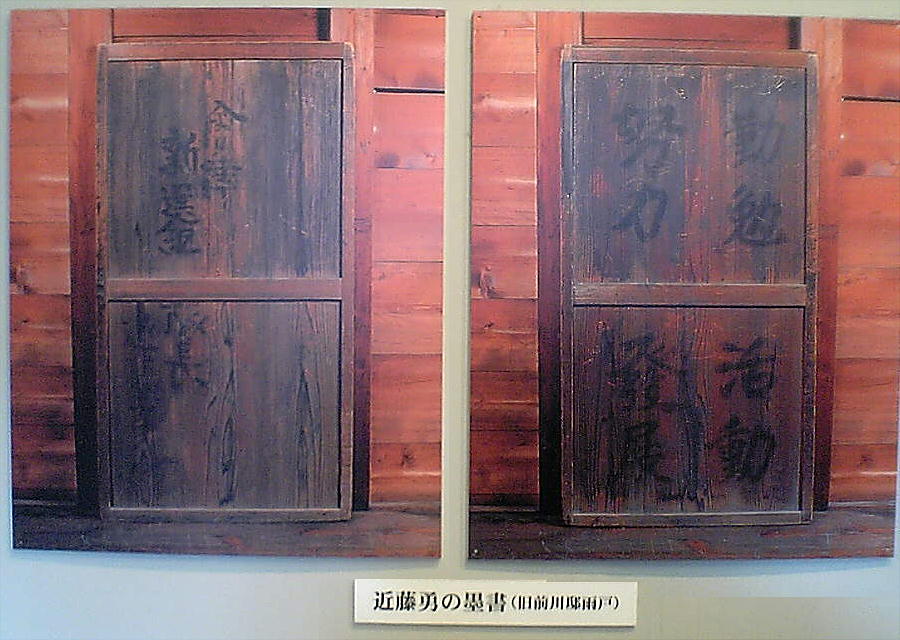 会津
新選組
隊長
勤勉
努力
活動
發展
近藤勇の墨書(旧前川邸雨戸)